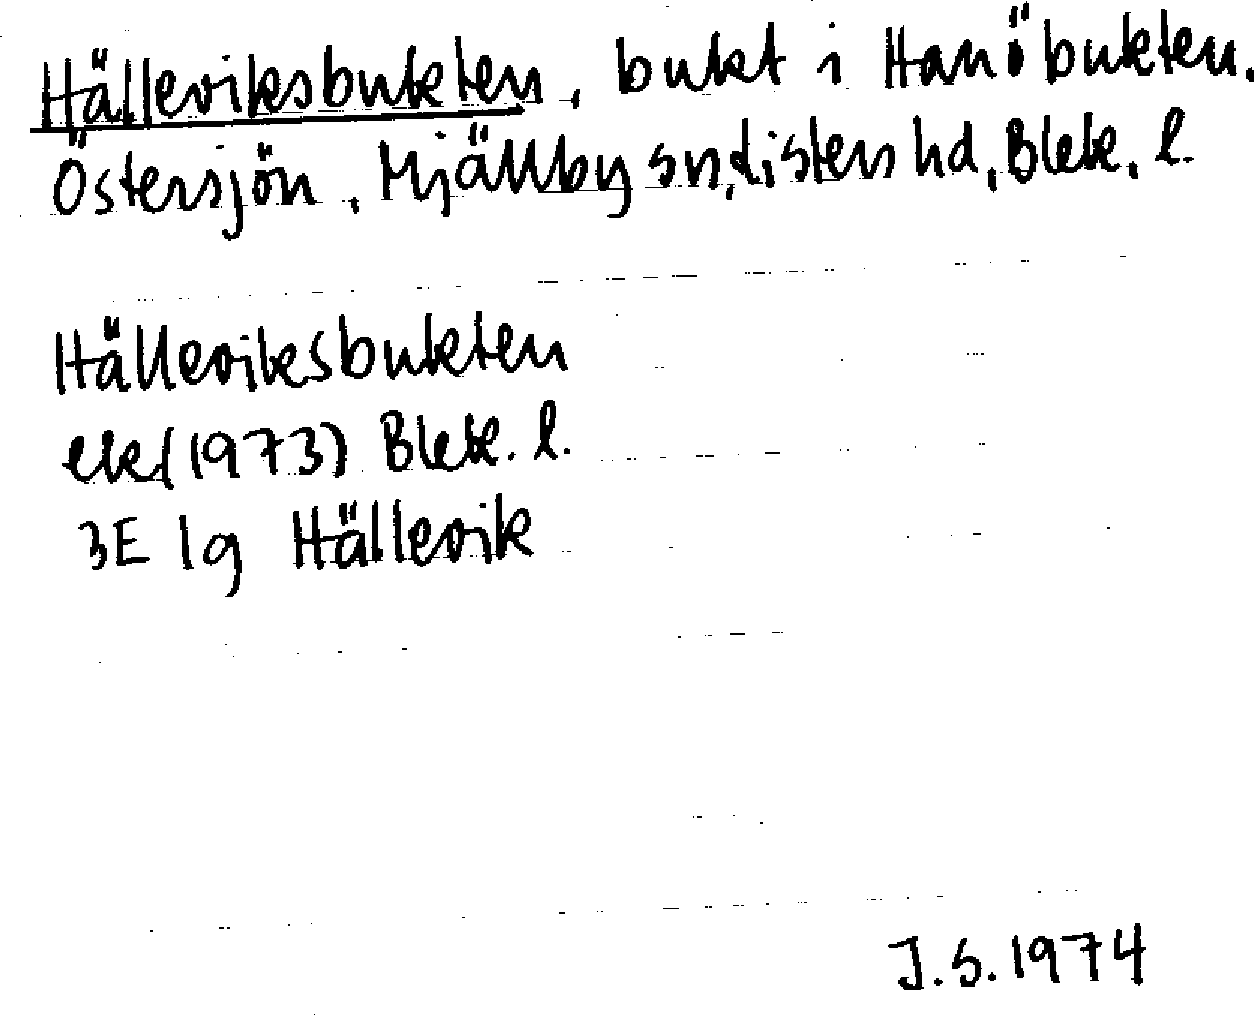 Hälleviksbukten, bukt i Hanöbukten.
Östersjön, Mjällby sn, Listers hd, Blek. l.
Hälleviksbukten
ek (1973) Blek. l.
3E 1g Hällevik
J.S. 1974